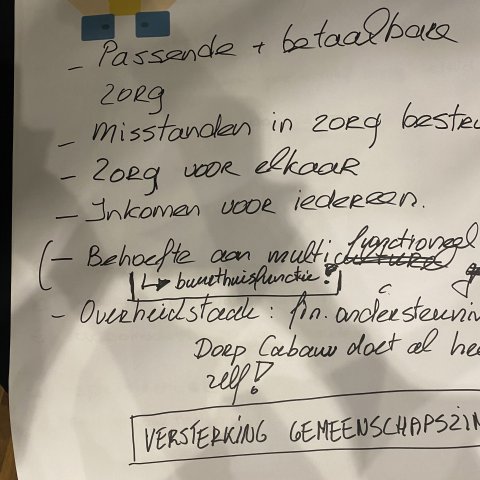 - Passende + betaalbare
zorg
- Misstanden in zorg bestru
- Zorg voor elkaar
- Inkomen voor iedereen.
(- Behoefte aan multi functioneel
↳ buurthuisfunctie!
- Overheidstaak: fin. ondersteunin
Dorp Cabauw doet al hee
zelf!
VERSTERKING GEMEENSCHAPSZIN